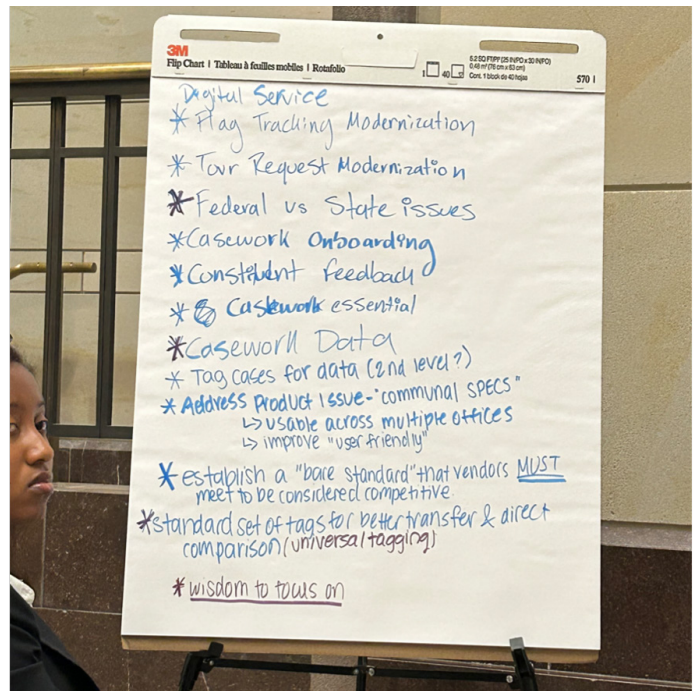 3M
Flip Chart | Tableau à feuilles mobiles | Rotafolio
1 40
5.2 SQ FT/PF (25 IN/PO x 30 IN/PO)
0,48 m² (76 cm x 63 cm)
Cont. 1 block de 40 hojas
570
Digital Service
* Flag Tracking Modernization
* Tour Request Modernization
* Federal vs State issues
* Casework Onboarding
* Constituent feedback
* Casework essential
* Casework Data
* Tag cases for data (2nd level?)
* Address Product Issue - "communal SPECS"
↳ usable across multiple offices
↳ improve "user friendly"
* establish a "bare standard" that vendors MUST
meet to be considered competitive
* standard set of tags for better transfer & direct
comparison (universal tagging)
* wisdom to focus on